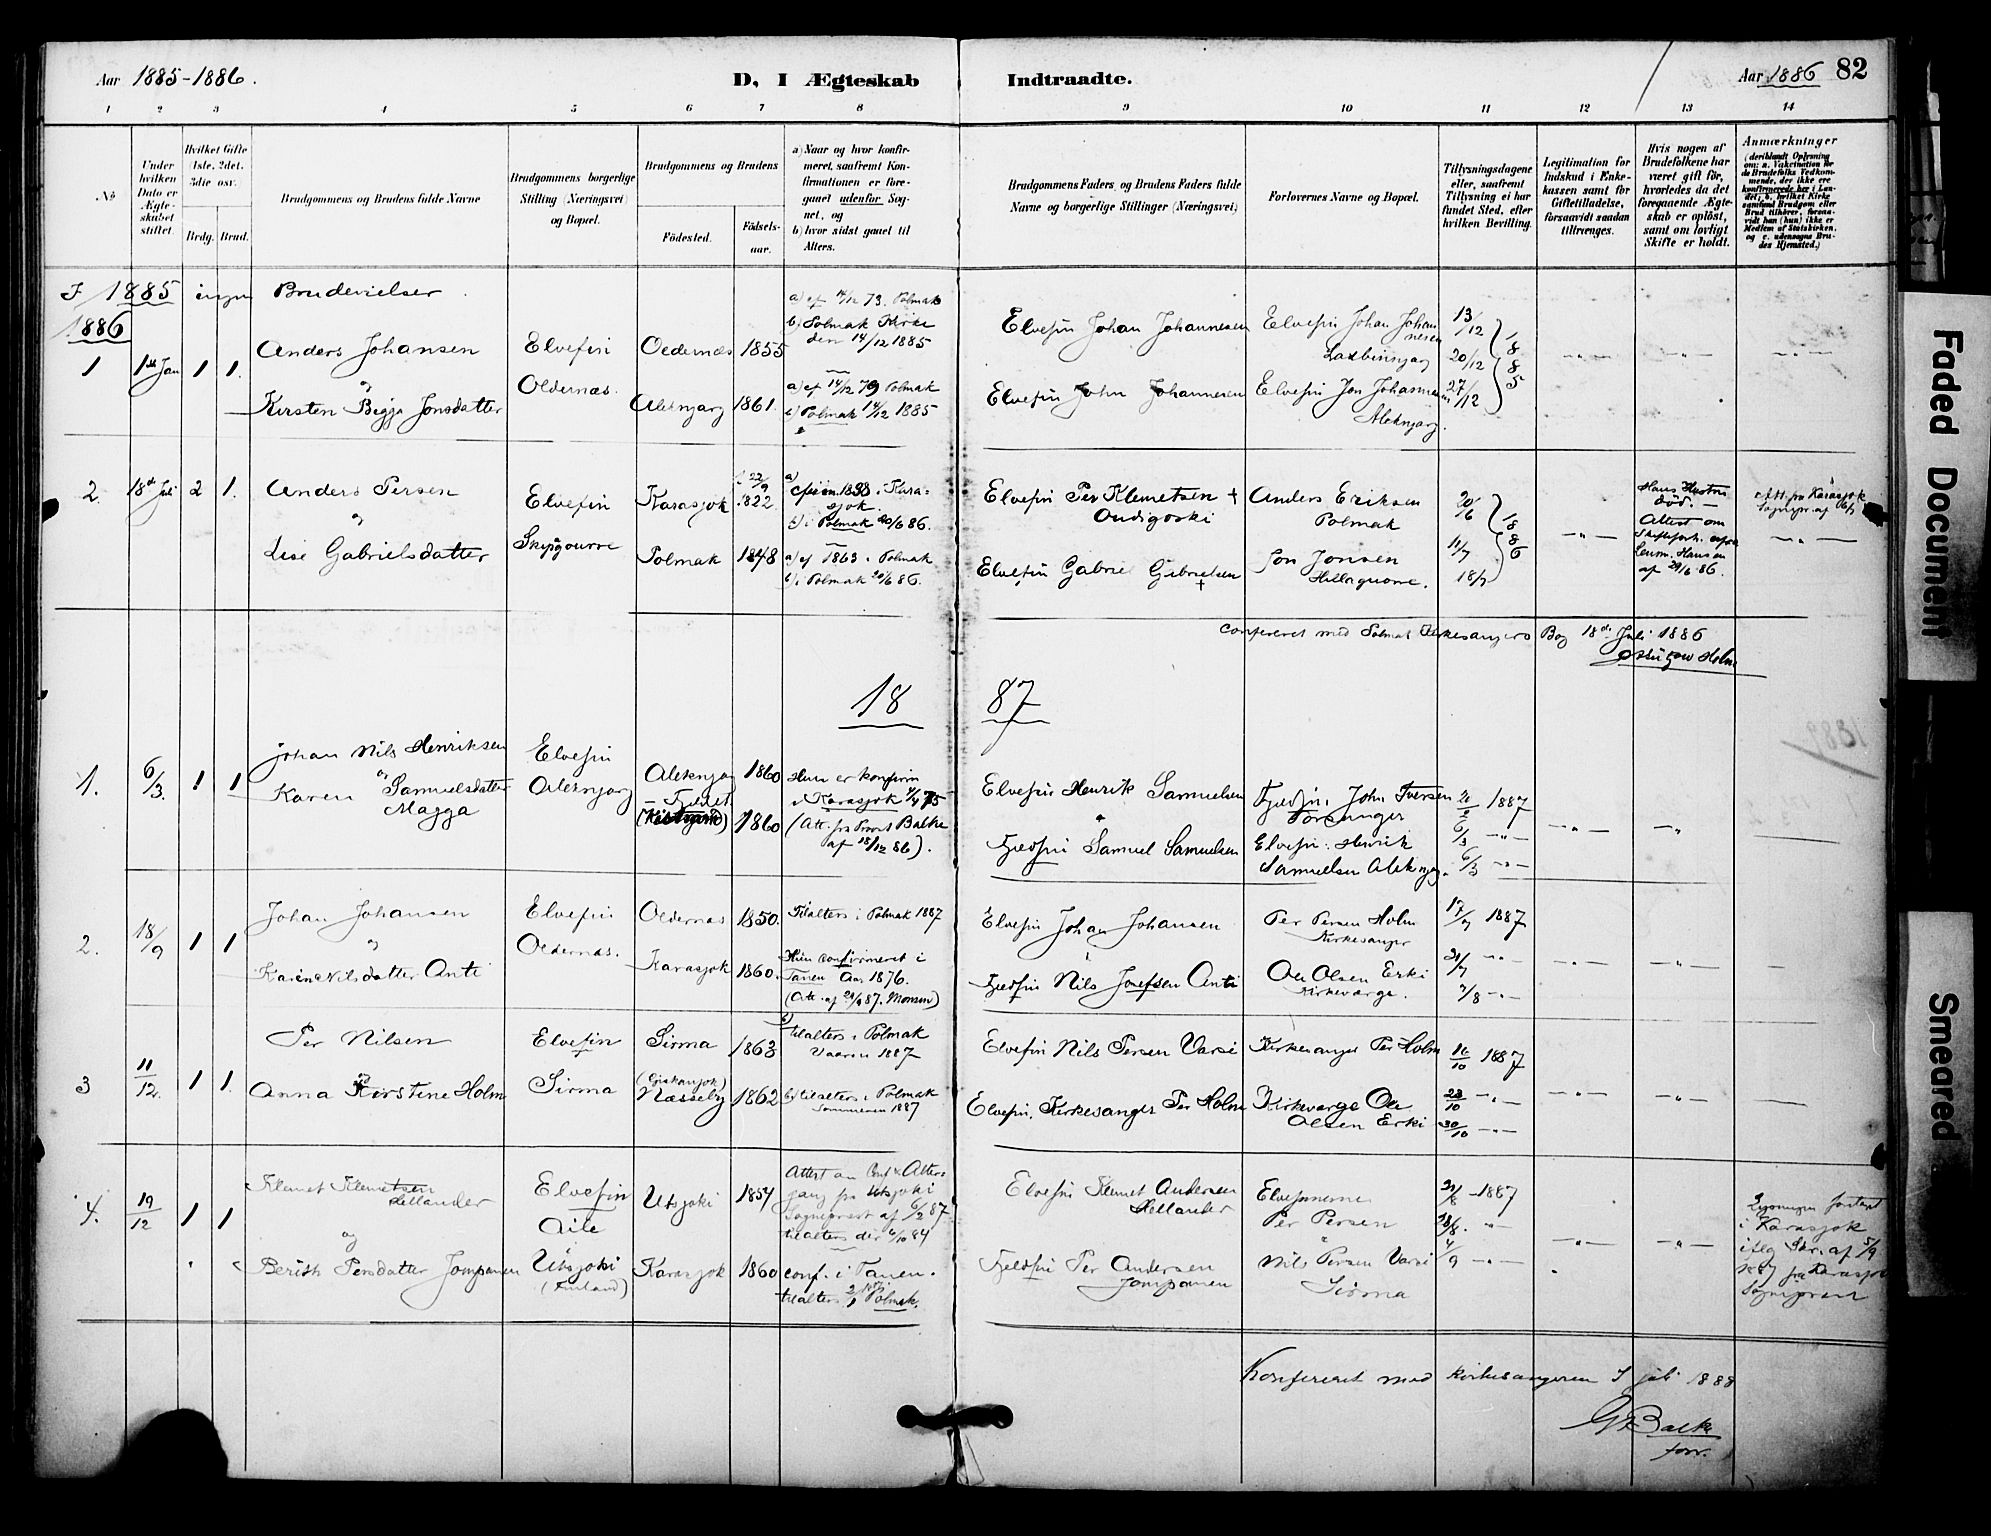 Aar 1885-1886.
D, I Ægteskab Indtraadte.
Aar 1886 82
1 2 3 4 5 6 7 8 9 10 11 12 13 14
No
Under hvilken Dato er Ægteskabet stiftet.
Hvilket Gifte (1ste, 2det, 3die osv.
Brdg. Brud.
Brudgommens og Brudens fulde Navne
Brudgommens borgerlige Stilling (Næringsvei) og Bopæl.
Brudgommens og Brudens
Fødested. Fødselsaar.
a) Naar og hvor konfirmeret, saafremt Konfirmationen er foregaaet udenfor Sognet, og
b) hvor sidst gaaet til Alters.
Brudgommens Faders, og Brudens Faders fulde Navne og borgerlige Stillinger (Næringsvei)
Forlovernes Navne og Bopæl.
Tillysningsdagene eller, saafremt Tillysning ei har fundet Sted, efter hvilken Bevilling.
Legitimation for Indskud i Enkekassen samt for Giftetilladelse, forsaavidt saadan tiltrænges.
Hvis nogen af Brudefolkene har været gift før, hvorledes da det foregaaende Ægteskab er opløst, samt om lovligt Skifte er holdt.
Anmærkninger
(deriblandt Oplysning om: a. Vakcination for de Brudefolks Vedkommende, der ikke ere konfirmerede her i Landet; b. hvilket Kirkesamfund Brudgom eller Brud tilhører, forsaavidt han (hun) ikke er Medlem af Statskirken, og c. udensogns Brudes Hjemsted.)
I 1885 ingen Brudevielser
1886
1 1ste Jan 1 1.
Anders Johansen
og
Kirsten Bigga Jonsdatter
Elvefin
Oldernæs.
Oldernæs 1855
Aleknjarg 1861.
a) ef 14/12 73. Polmak
b) Polmak Kirke
den 14/12 1885
a) ef 14/12 79 Polmak
b) Polmak 14/12 1885
Elvefin Johan Johannesen
Elvefin John Johannesen
Elvefin Johan Johannesen
Elvefin Jon Johannesen
Aleknjarg.
13/12
20/12
27/12
1885
2. 18de Juli 2 1.
Anders Persen
og
Lise Gabrielsdatter
Elvefin
Karasjok 22/9 1822
Polmak 1848
b) i Polmak 20/6 86.
a) ef 1863 i Polmak
b) i Polmak 20/6 86.
Elvefin Per Klemetsen +
Elvefin Gabriel Gabrielsen +
Anders Eriksen
Polmak
Jon Jonsen
20/6
11/7
18/7
1886
Hans Hustru
død. -
Attest om
af 29/6 86.
Confereret med Polmak Kirkesangers Bog 18de Juli 1886
18 87
1. 6/3. 1 1
Johan Nils Henriksen
og
Karen Samuelsdatter
Magga
Elvefin
Aleknjarg
Aleknjarg 1860
1860
Hun er konfirm
i Karasjok 4/7 75
(Att. fra Provst Balke
af 18/12 86).
Elvefin Henrik Samuelsen
Fjeldfin Samuel Samuelsen
Fjeldfin. John Iversen
Porsanger
Elvefin. Henrik
Samuelsen Aleknjarg.
20/2 1887
6/3 -"-
6/3 -"-
2. 18/9 1 1
Johan Johansen
og
Karen Nilsdatter Anti
Elvefin
Oldernæs.
Oldernæs 1850.
Karasjok 1860.
Tilalters i Polmak 1887
Hun confirmeret i
Tanen Aar 1876.
Elvefin Johan Johansen
Fjeldfin Nils Josefsen Anti
Per Persen Holm
Kirkesanger
Ole Olsen Erki
Kirkeværge.
17/7 1887
21/7 -"-
7/8 -"-
3 11/12. 1 1.
Per Nilsen
og
Anna Kirstine Holm
Elvefin
Sirma
Sirma 1863
Næsseby 1862
b) tilalters i Polmak
Vaaren 1887
b) tilalters i Polmak
Sommeren 1887
Elvefin Nils Persen Varsi
Elvefin. Kirkesanger Per Holm
Kirkesanger Per Holm
Kirkeværge Ole
Olsen Erki
16/10 1887
23/10 -"-
30/10 -"-
4. 19/12 1 1
Klemet Klemetsen
Hellander
og
Berith Persdatter Jompanen
Elvefin
Aile
Utsjoki
(Finland)
Utsjoki 1857
Karasjok 1860
Attest om Conf & Alters-
gang fra Utsjoki
Sognepræst af 6/2 87
tilalters der 6/10 84
conf. i Tanen.
tilalters i Polmak.
Elvefin Klemet Andersen
Hellander
Fjeldfin Per Andersen
Jompanen
Elvefinnerne
Per Persen
Nils Persen Varsi
Sirma
21/8 -1887
28/8. -"-
4/9 -"-
i Karasjok
iflg Skr. af 5/9
fra Karasjok
Konfereret med Kirkesangeren I juli 1888
Balke